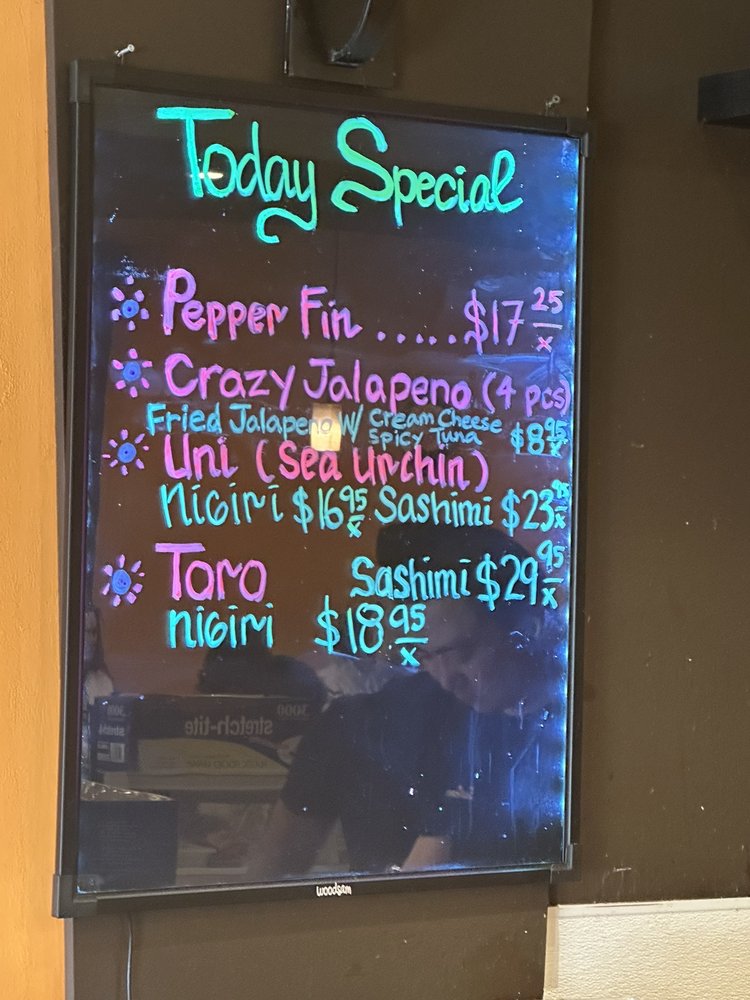 Today Special
Pepper Fin ..... $17 25/x
Crazy Jalapeno (4 pcs)
Fried Jalapeno W/ Cream Cheese Spicy Tuna $8 95/x
Uni (Sea Urchin)
Nigiri $16 95/x Sashimi $23 95/x
Toro Sashimi $29 95/x
Nigiri $18.95/x
3000 stretch-tite
woodsam